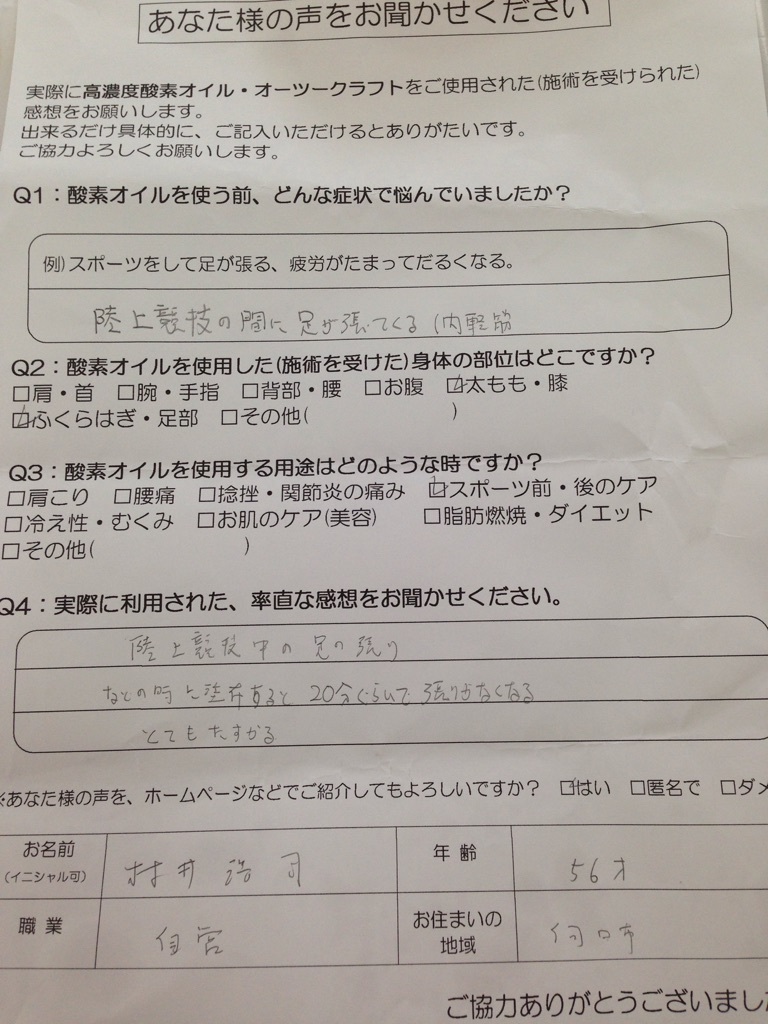 あなた様の声をお聞かせください
実際に高濃度酸素オイル・オーツークラフトをご使用された(施術を受けられた)
感想をお願いします。
出来るだけ具体的に、ご記入いただけるとありがたいです。
ご協力よろしくお願いします。
Q1：酸素オイルを使う前、どんな症状で悩んでいましたか？
例)スポーツをして足が張る、疲労がたまってだるくなる。
陸上競技の間に足が張ってくる (内軽筋
Q2：酸素オイルを使用した(施術を受けた)身体の部位はどこですか？
□肩・首 □腕・手指 □背部・腰 □お腹 ☑太もも・膝
☑ふくらはぎ・足部 □その他( )
Q3：酸素オイルを使用する用途はどのような時ですか？
□肩こり □腰痛 □捻挫・関節炎の痛み ☑スポーツ前・後のケア
□冷え性・むくみ □お肌のケア(美容) □脂肪燃焼・ダイエット
□その他( )
Q4：実際に利用された、率直な感想をお聞かせください。
陸上競技中の足の張り
などの時に塗布すると 20分ぐらいで張りがなくなる
とてもたすかる
※あなた様の声を、ホームページなどでご紹介してもよろしいですか？ ☑はい □匿名で □ダメ
お名前 村井浩司 年齢 56才
(イニシャル可)
職業 自営 お住まいの
地域 口市
ご協力ありがとうございました